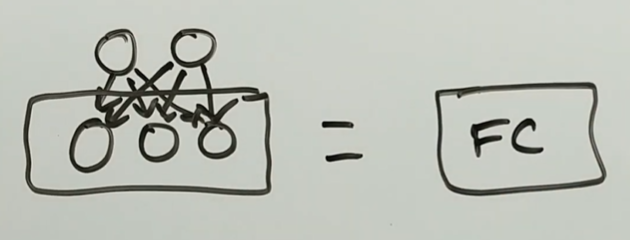 = FC